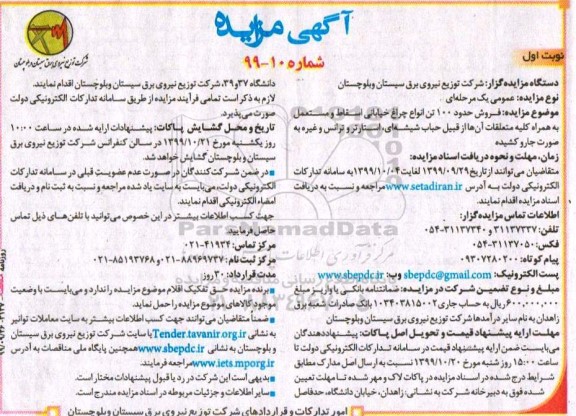 آگهی مزایده
شماره ۱۰-۹۹
شرکت توزیع نیروی برق سیستان و بلوچستان
نوبت اول
دستگاه مزایده گزار: شرکت توزیع نیروی برق سیستان وبلوچستان
نوع مزایده: عمومی یک مرحله‌ای
موضوع مزایده: فروش حدود ۱۰۰ تن انواع چراغ خیابانی اسقاط و مستعمل
به همراه کلیه متعلقات آن‌ها از قبیل حباب شیشه‌ای، استارتر و ترانس و غیره به
صورت جارو کشیده
زمان، مهلت و نحوه دریافت اسناد مزایده:
متقاضیان می‌توانند از تاریخ ۱۳۹۹/۰۹/۲۹ لغایت ۱۳۹۹/۱۰/۰۴ به سامانه تدارکات
الکترونیکی دولت به آدرس www.setadiran.ir مراجعه و نسبت به دریافت
اسناد مزایده اقدام نمایند.
اطلاعات تماس مزایده گزار:
تلفن: ۳۱۱۳۷۳۳۷ و ۳۱۱۳۷۳۴۰-۰۵۴
فکس: ۳۱۱۳۷۰۵۰-۰۵۴
پیام کوتاه: ۰۹۳۰۷۳۸۰۲۰۰
پست الکترونیک: sbepdc@gmail.com وب: www.sbepdc.ir
مبلغ و نوع تضمین شرکت در مزایده: ضمانتنامه بانکی یا واریز مبلغ
۶۰۰,۰۰۰,۰۰۰ ریال به حساب جاری ۱۰۳۴۰۳۸۱۵۰۰۲ بانک صادرات شعبه برق
زاهدان به نام سایر درآمدها شرکت توزیع نیروی برق سیستان وبلوچستان
مهلت ارایه پیشنهاد قیمت و تحویل اصل پاکات: پیشنهاددهندگان
می‌بایست ضمن ارایه پیشنهاد قیمت در سامانه تدارکات الکترونیکی دولت تا
ساعت ۱۵:۰۰ روز شنبه مورخ ۱۳۹۹/۱۰/۲۰ نسبت به ارسال اصل مدارک مطابق
شرایط درج شده در اسناد مزایده در پاکات لاک و مهر شده تا مهلت تعیین
شده فوق به دبیرخانه شرکت به نشانی: زاهدان، خیابان دانشگاه، حدفاصل
دانشگاه ۳۷و۳۹، شرکت توزیع نیروی برق سیستان وبلوچستان اقدام نمایند.
لازم به ذکر است تمامی فرآیند مزایده از طریق سامانه تدارکات الکترونیکی دولت
صورت می‌پذیرد.
تاریخ و محل گشایش پاکات: پیشنهادات ارایه شده در ساعت ۱۰:۰۰
روز یکشنبه مورخ ۱۳۹۹/۱۰/۲۱ در سالن کنفرانس شرکت توزیع نیروی برق
سیستان و بلوچستان گشایش خواهد شد.
در ضمن شرکت‌کنندگان در صورت عدم عضویت قبلی در سامانه تدارکات
الکترونیکی دولت، می‌بایست به سایت یاد شده مراجعه و نسبت به ثبت نام و دریافت
امضاء الکترونیکی اقدام نمایند.
جهت کسب اطلاعات بیشتر در این خصوص می‌توانید با تلفن‌های ذیل تماس
حاصل فرمایید:
مرکز تماس: ۴۱۹۳۴-۰۲۱
مرکز ثبت نام: ۸۸۹۶۹۷۳۷-۰۲۱ و ۸۵۱۹۳۷۶۸-۰۲۱
مدت قرارداد: ۳۰ روز
برنده مزایده حق تفکیک اقلام موضوع مزایده را ندارد و می‌بایست با وضعیت
موجود کالاهای موضوع مزایده را حمل نماید.
ضمناً متقاضیان می‌توانند جهت کسب اطلاعات بیشتر به سایت معاملات توانیر
به نشانی Tender.tavanir.org.ir یا سایت شرکت توزیع نیروی برق سیستان
و بلوچستان به نشانی www.sbepdc.ir و همچنین پایگاه ملی مناقصات به آدرس
www.iets.mporg.ir مراجعه فرمایند.
بدیهی است این شرکت در رد یا قبول پیشنهادات مختار است.
سایر اطلاعات و جزئیات مربوطه در اسناد مزایده مندرج است.
امور تدارکات و قراردادهای شرکت توزیع نیروی برق سیستان وبلوچستان
ParsNamadData